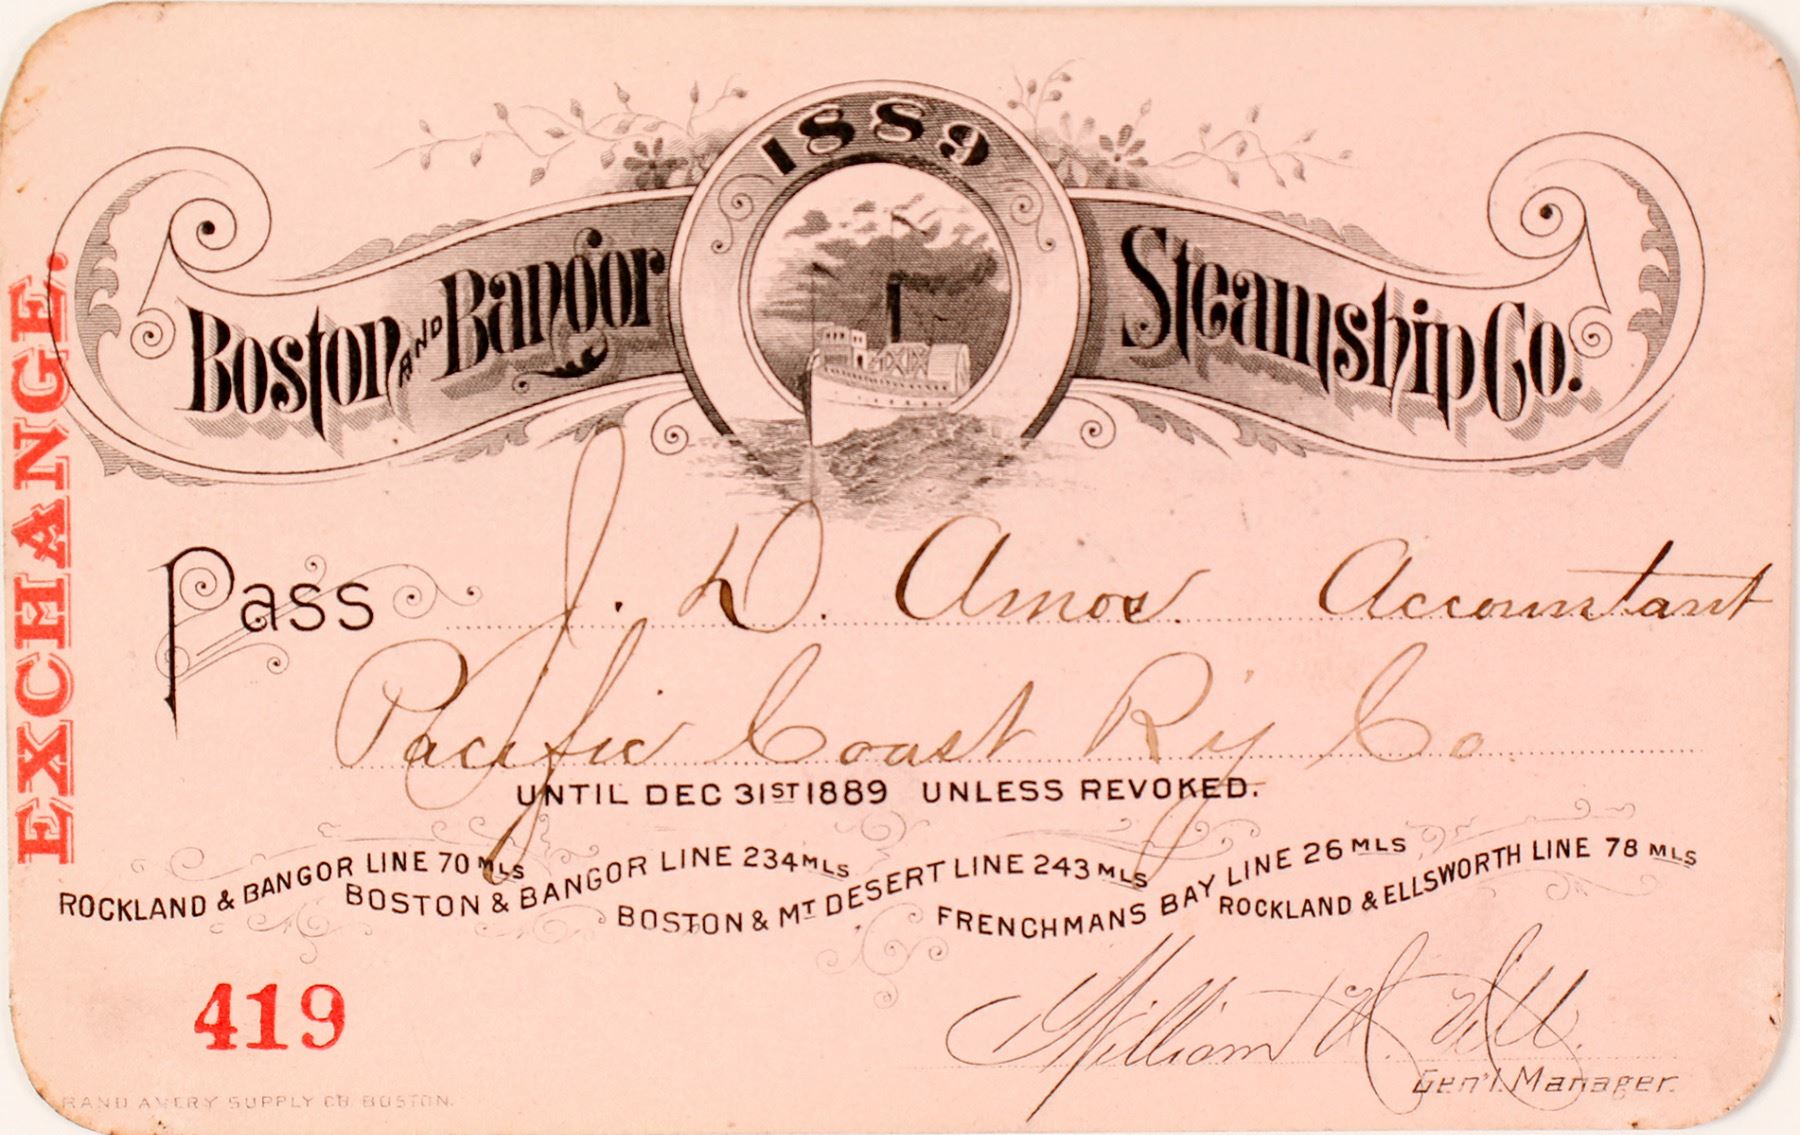 1889
Boston AND Bangor Steamship Co.
EXCHANGE.
Pass J. D. Amos. Accountant
Pacific Coast Ry Co
UNTIL DEC 31ST 1889 UNLESS REVOKED.
ROCKLAND & BANGOR LINE 70 MLS
BOSTON & BANGOR LINE 234 MLS
BOSTON & MT DESERT LINE 243 MLS
FRENCHMANS BAY LINE 26 MLS
ROCKLAND & ELLSWORTH LINE 78 MLS
419
William H. Hill
Gen'l. Manager.
RAND AVERY SUPPLY CO BOSTON.